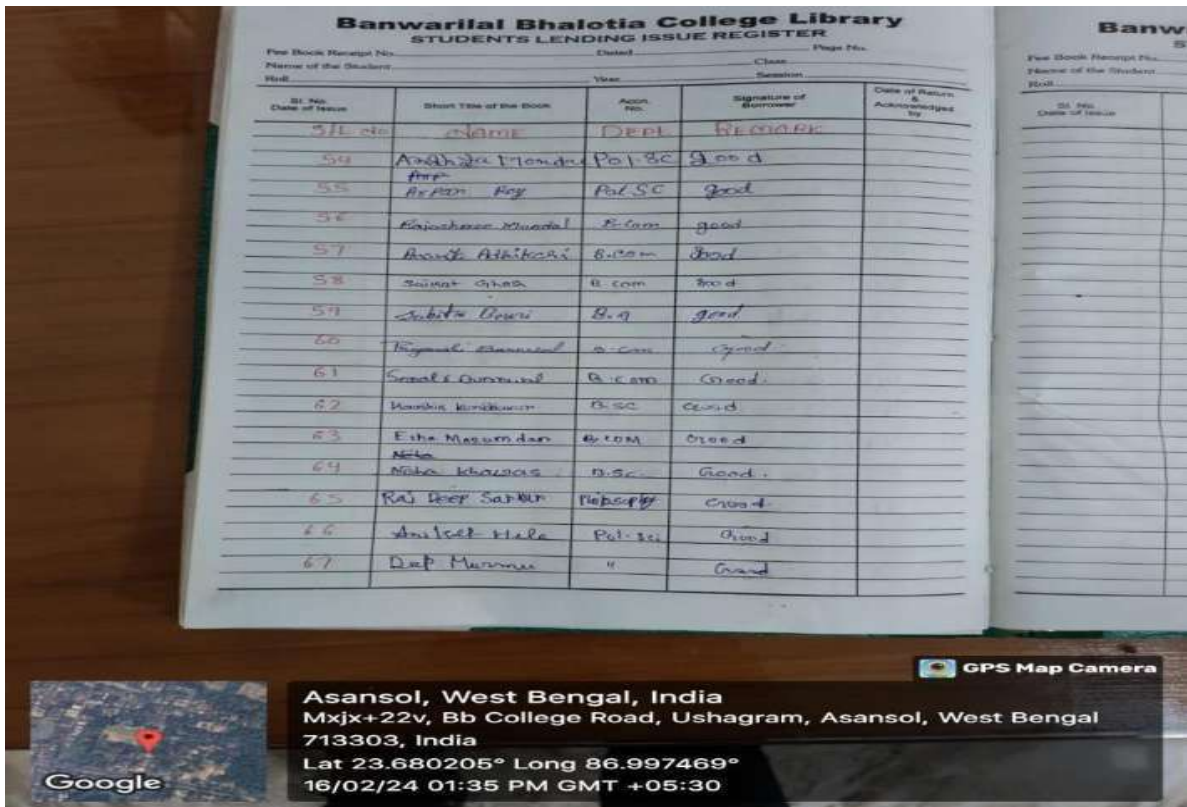 Banwarilal Bhalotia College Library
STUDENTS LENDING ISSUE REGISTER
Fee Book Receipt No. Dated Page No.
Name of the Student Class
Roll Year Session
Sl. No. Date of Issue Short Title of the Book Accn. No. Signature of Borrower Date of Return & Acknowledged by
S/L No NAME DEPT REMARK
54 Pol-SC good
55 Arpan Roy Pol SC good
56 Rajashree Mondal B.Com good
57 Adhikari B.com Good
58 Saikat Ghosh B.com Good
59 Sabita B.A good
60 B.com Good
61 B.com Good.
62 B.SC Good
63 Esha Mazumdar B.COM Good
64 Nisha Khawas B.Sc. Good.
65 Raj Deep Sarkar Good
66 Aniket Hela Pol-Sci Good
67 Dip Murmu " Good
Banw
S
Fee Book Receipt No.
Name of the Student
Roll
Sl. No.
Date of Issue
GPS Map Camera
Google
Asansol, West Bengal, India
Mxjx+22v, Bb College Road, Ushagram, Asansol, West Bengal
713303, India
Lat 23.680205° Long 86.997469°
16/02/24 01:35 PM GMT +05:30